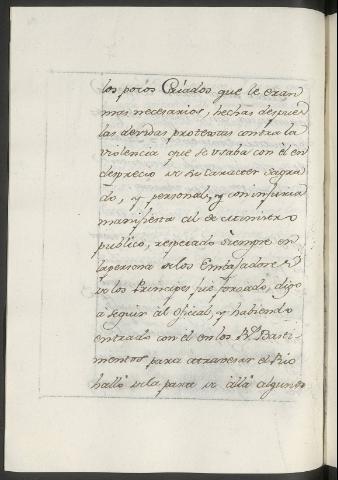 los pocos Criados que le eran
mas necesarios, hechas despues
las devidas protextas contra la
violencia que se usaba con él en
desprecio de su Caracter Sagra
do, y personal, y con injuria
manifiesta al de Ministro
publico, respetado siempre en
la persona de los Embajadores
de los Principes fué forzado, digo
á seguir al oficial, y habiendo
entrado con él en los Rs. Basti-
mentos para atravesar el Rio
halló de la parte de allá algunos